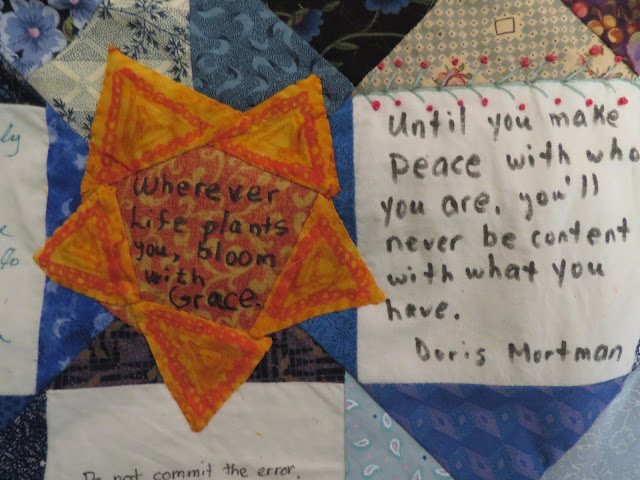 Wherever
Life plants
you, bloom
with
Grace.
Until you make
peace with who
you are, you'll
never be content
with what you
have.
Doris Mortman
Do not commit the error,